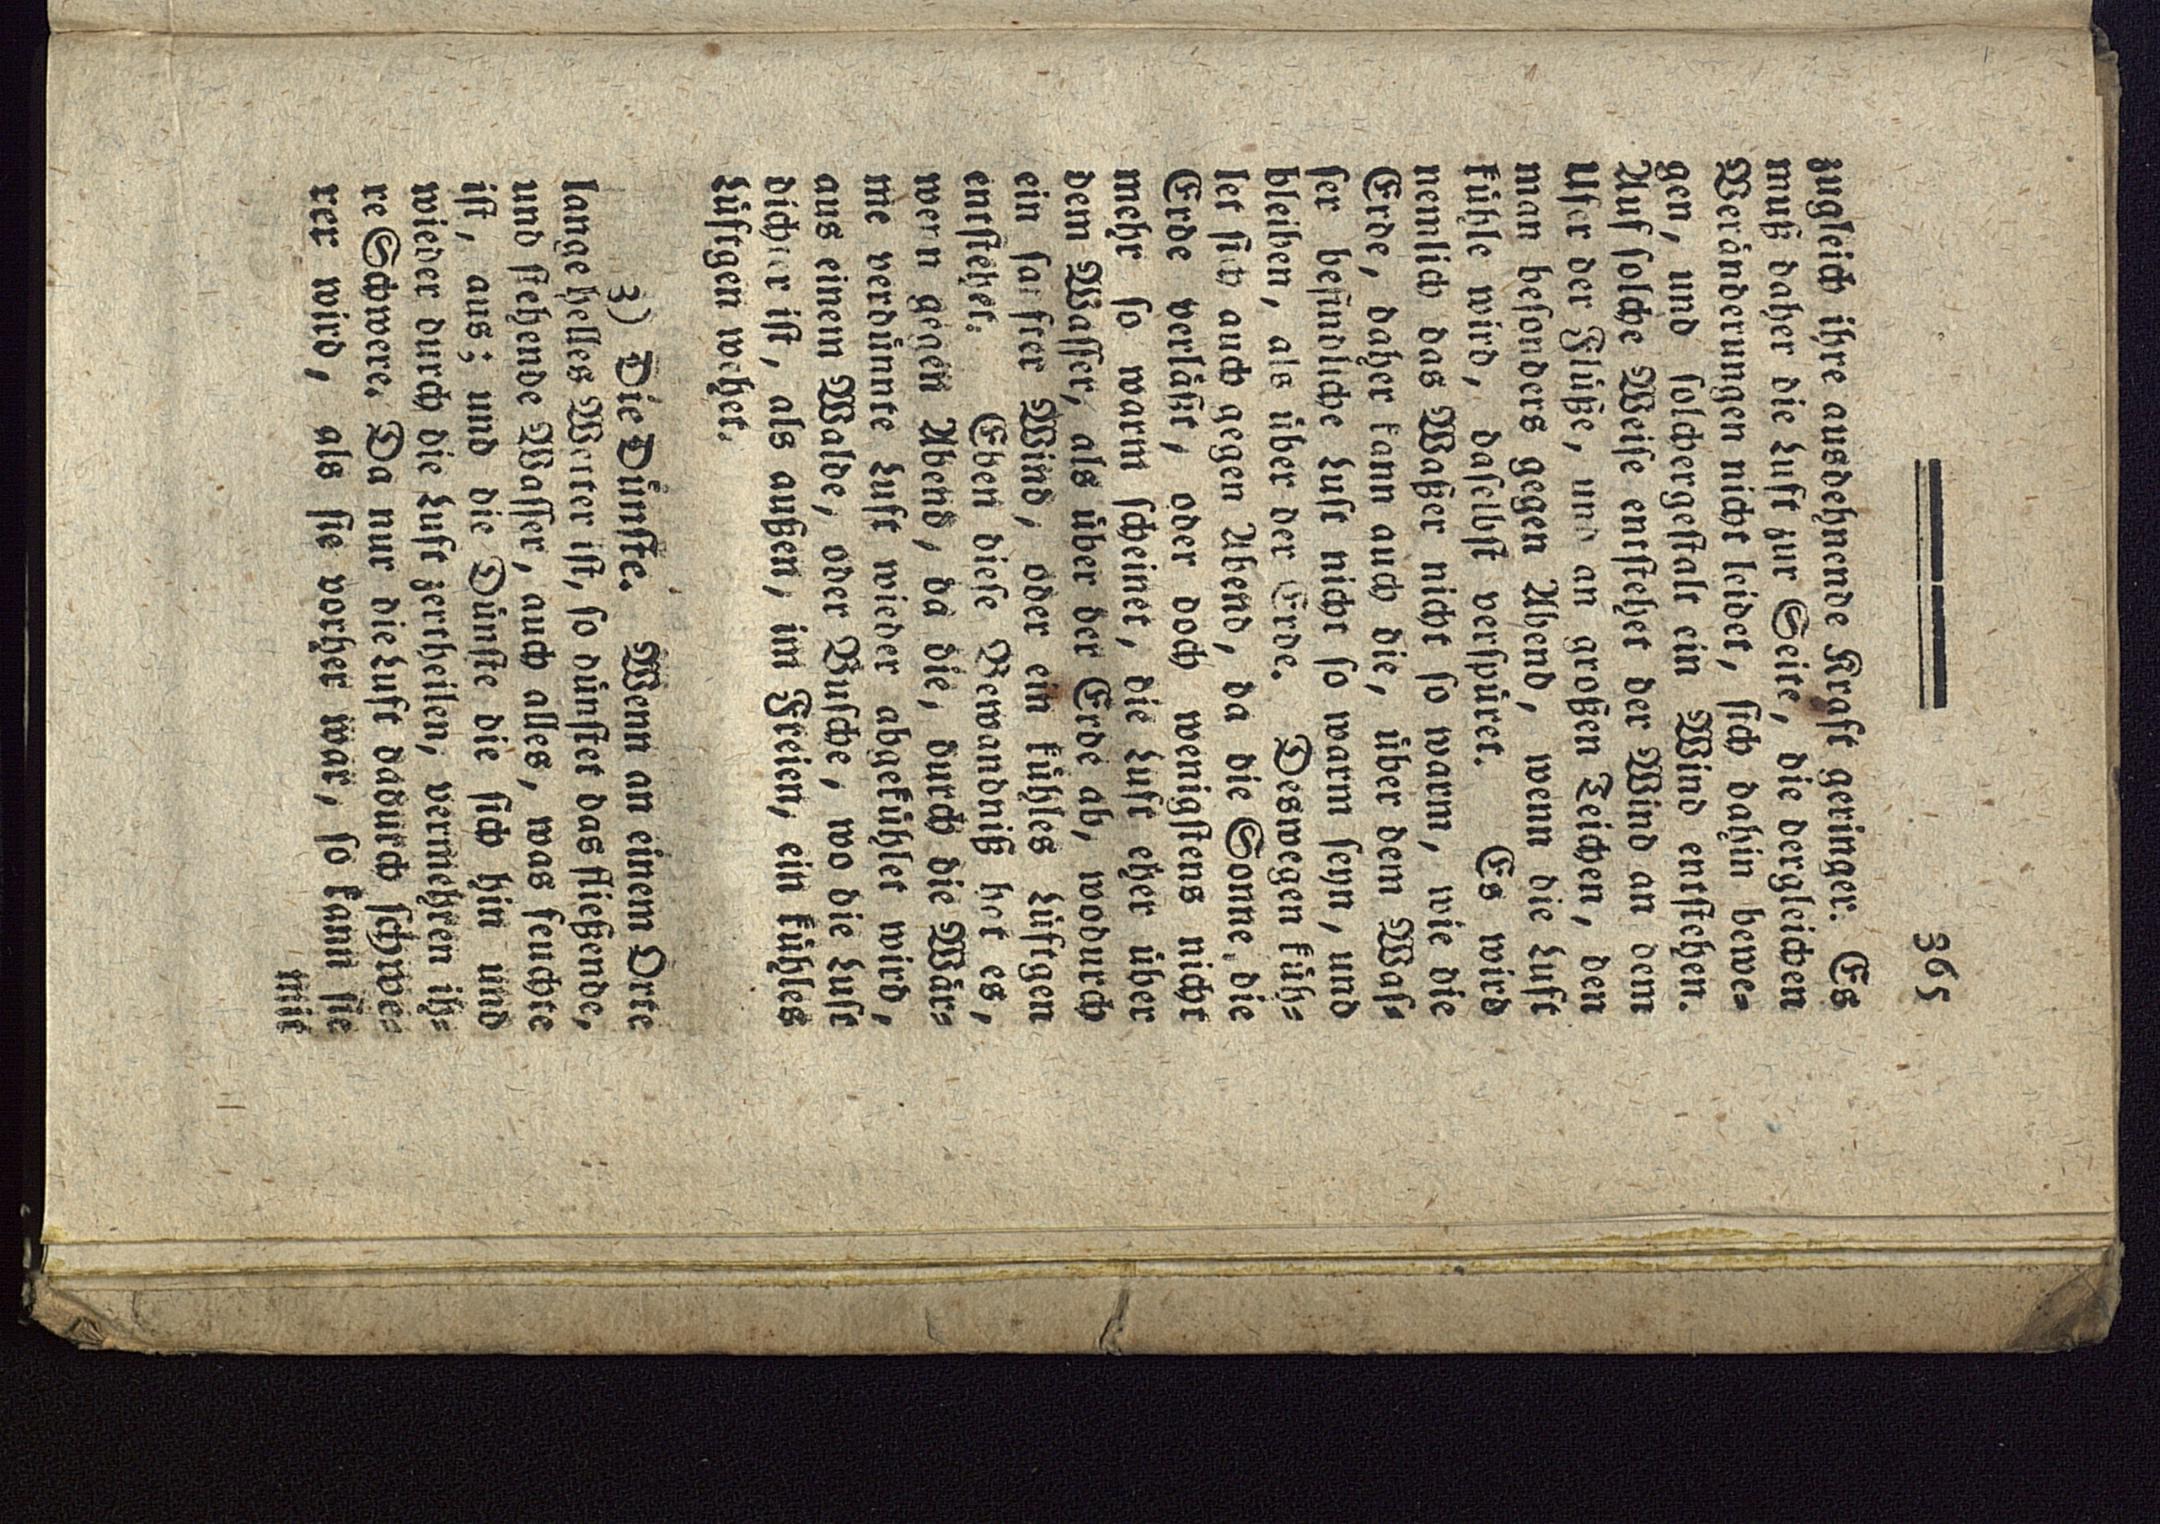 365
zugleich ihre ausdehnende Kraft geringer. Es
muß daher die Luft zur Seite, die dergleichen
Veränderungen nicht leidet, sich dahin bewe-
gen, und solchergestalt ein Wind entstehen.
Auf solche Weise entstehet der Wind an dem
Ufer der Flüße, und an großen Teichen, den
man besonders gegen Abend, wenn die Luft
kühle wird, daselbst verspüret. Es wird
nemlich das Waßer nicht so warm, wie die
Erde, daher kann auch die, über dem Was-
ser befindliche Luft nicht so warm seyn, und
bleiben, als über der Erde. Deswegen küh-
let sich auch gegen Abend, da die Sonne, die
Erde verläßt, oder doch wenigstens nicht
mehr so warm scheinet, die Luft eher über
dem Wasser, als über der Erde ab, wodurch
ein sanfter Wind, oder ein kühles Lüftgen
entstehet. Eben diese Bewandniß hat es,
wenn gegen Abend, da die, durch die Wär-
me verdünnte Luft wieder abgekühlet wird,
aus einem Walde, oder Busche, wo die Luft
dichter ist, als außen, im Freien, ein kühles
Lüftgen wehet.
3) Die Dünste. Wenn an einem Orte
lange helles Wetter ist, so dünstet das fließende,
und stehende Wasser, auch alles, was feuchte
ist, aus; und die Dünste die sich hin und
wieder durch die Luft zertheilen, vermehren ih-
re Schwere. Da nur die Luft dadurch schwe-
rer wird, als sie vorher war, so kann sie
mit